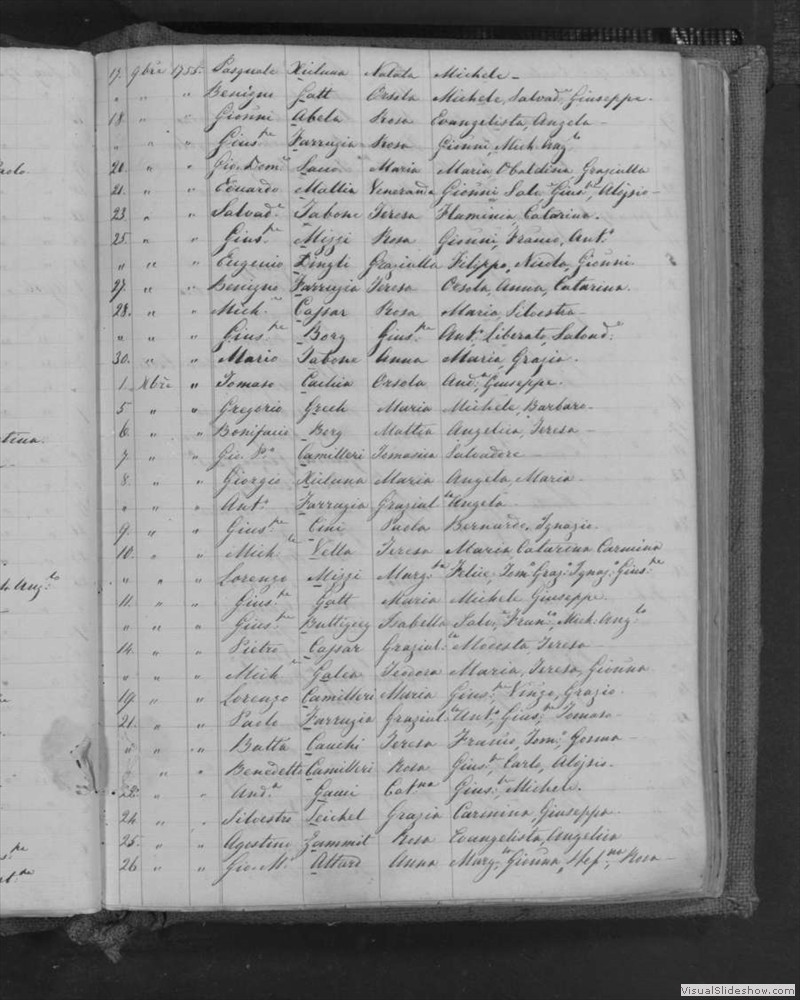 17. 9bre 1755. Pasquale Xicluna Natala Michele -
" " " Benigno Gatt Orsola Michele, Salvad:e Giuseppe.
18 " " Gionni Abela Rosa Evangelista, Angela -
" " " Gius:pe Farrugia Rosa Gionni, Mich: Ang:lo
20. " " Gio. Dom:co Maria Maria Ubaldina Graziulla
21. " " Eduardo Mattia Venerada Gionni Salv: Gius:pe, Aloisio -
23 " " Salvad:e Tabone Teresa Flaminia Catarina.
25. " " Gius:pe Mizzi Rosa Gionni, Franco, Ant:o
" " " Eugenio Dingli Graziulla Filippo, Gionni
27. " " Benigno Farrugia Teresa Orsola, Anna, Catarina.
28. " " Mich: Caspar Rosa Maria, Silvestra -
" " " Gius:pe Borg Gius:pa Ant:o Liberato, Salvad:e
30. " " Mario Tabone Anna Maria, Grazio.
1. Xbre " Tomaso Cachia Orsola And:a Giuseppe.
5 " " Gregorio Grech Maria Michele, Barbara -
6. " " Bonifacio Borg Mattia Angelica, Teresa -
7. " " Gio. P:o Camilleri Tomasia Salvadore -
8. " " Giorgio Xicluna Maria Angela, Maria.
" " " Ant:o Farrugia Grazial:la Angela -
9. " " Gius:pe Cini Paola Bernardo, Ignazio.
10. " " Mich:le Vella Teresa Maria Catarina Carmina
" " " Lorenzo Mizzi Marg:ta Felice, Tom:o Graz:o Ignaz:o Gius:pe
11. " " Gius:pe Gatt Maria Michele Giuseppe.
" " " Gius:pe Buttigieg Isabella Salv:e, Fran:co, Mich: Ang:lo
14. " " Pietro Caspar Grazial:la Modesta, Teresa -
" " " Mich:le Galea Teodora Maria, Teresa, Gionna
19. " " Lorenzo Camilleri Maria Gius:pe Vinzo, Grazio.
21. " " Paolo Farrugia Grazial:la Ant:o, Gius:pe Tomaso -
" " " Batta Cauchi Teresa Franco, Tom:o, Gosma -
" " " Benedetto Camilleri Rosa Gius:pe, Carlo, Aloisio.
22. " " And:a Gauci Cat:na Gius:pe, Michele.
24. " " Silvestro Seichel Grazia Carmina, Giuseppa.
25. " " Agostino Zammit Rosa Evangelista, Angelica
26 " " Gio. M:a Attard Anna Marg:ta, Gionna, Stef:na, Rosa -
VisualSlideshow.com